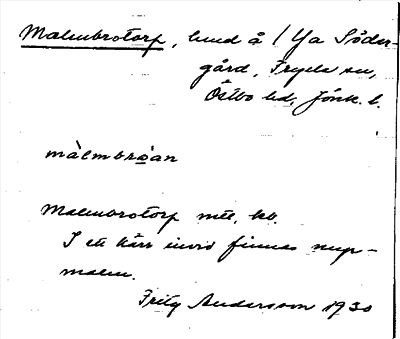 Malmbrotorp, lund å 1/4a Söder-
gård, Tryels sn,
Östbo hd, Jönk. l.
màlmbròan
Malmbrotorp mtl, kb.
I ett kärr invid finnas myr-
malm.
Fritz Andersson 1930